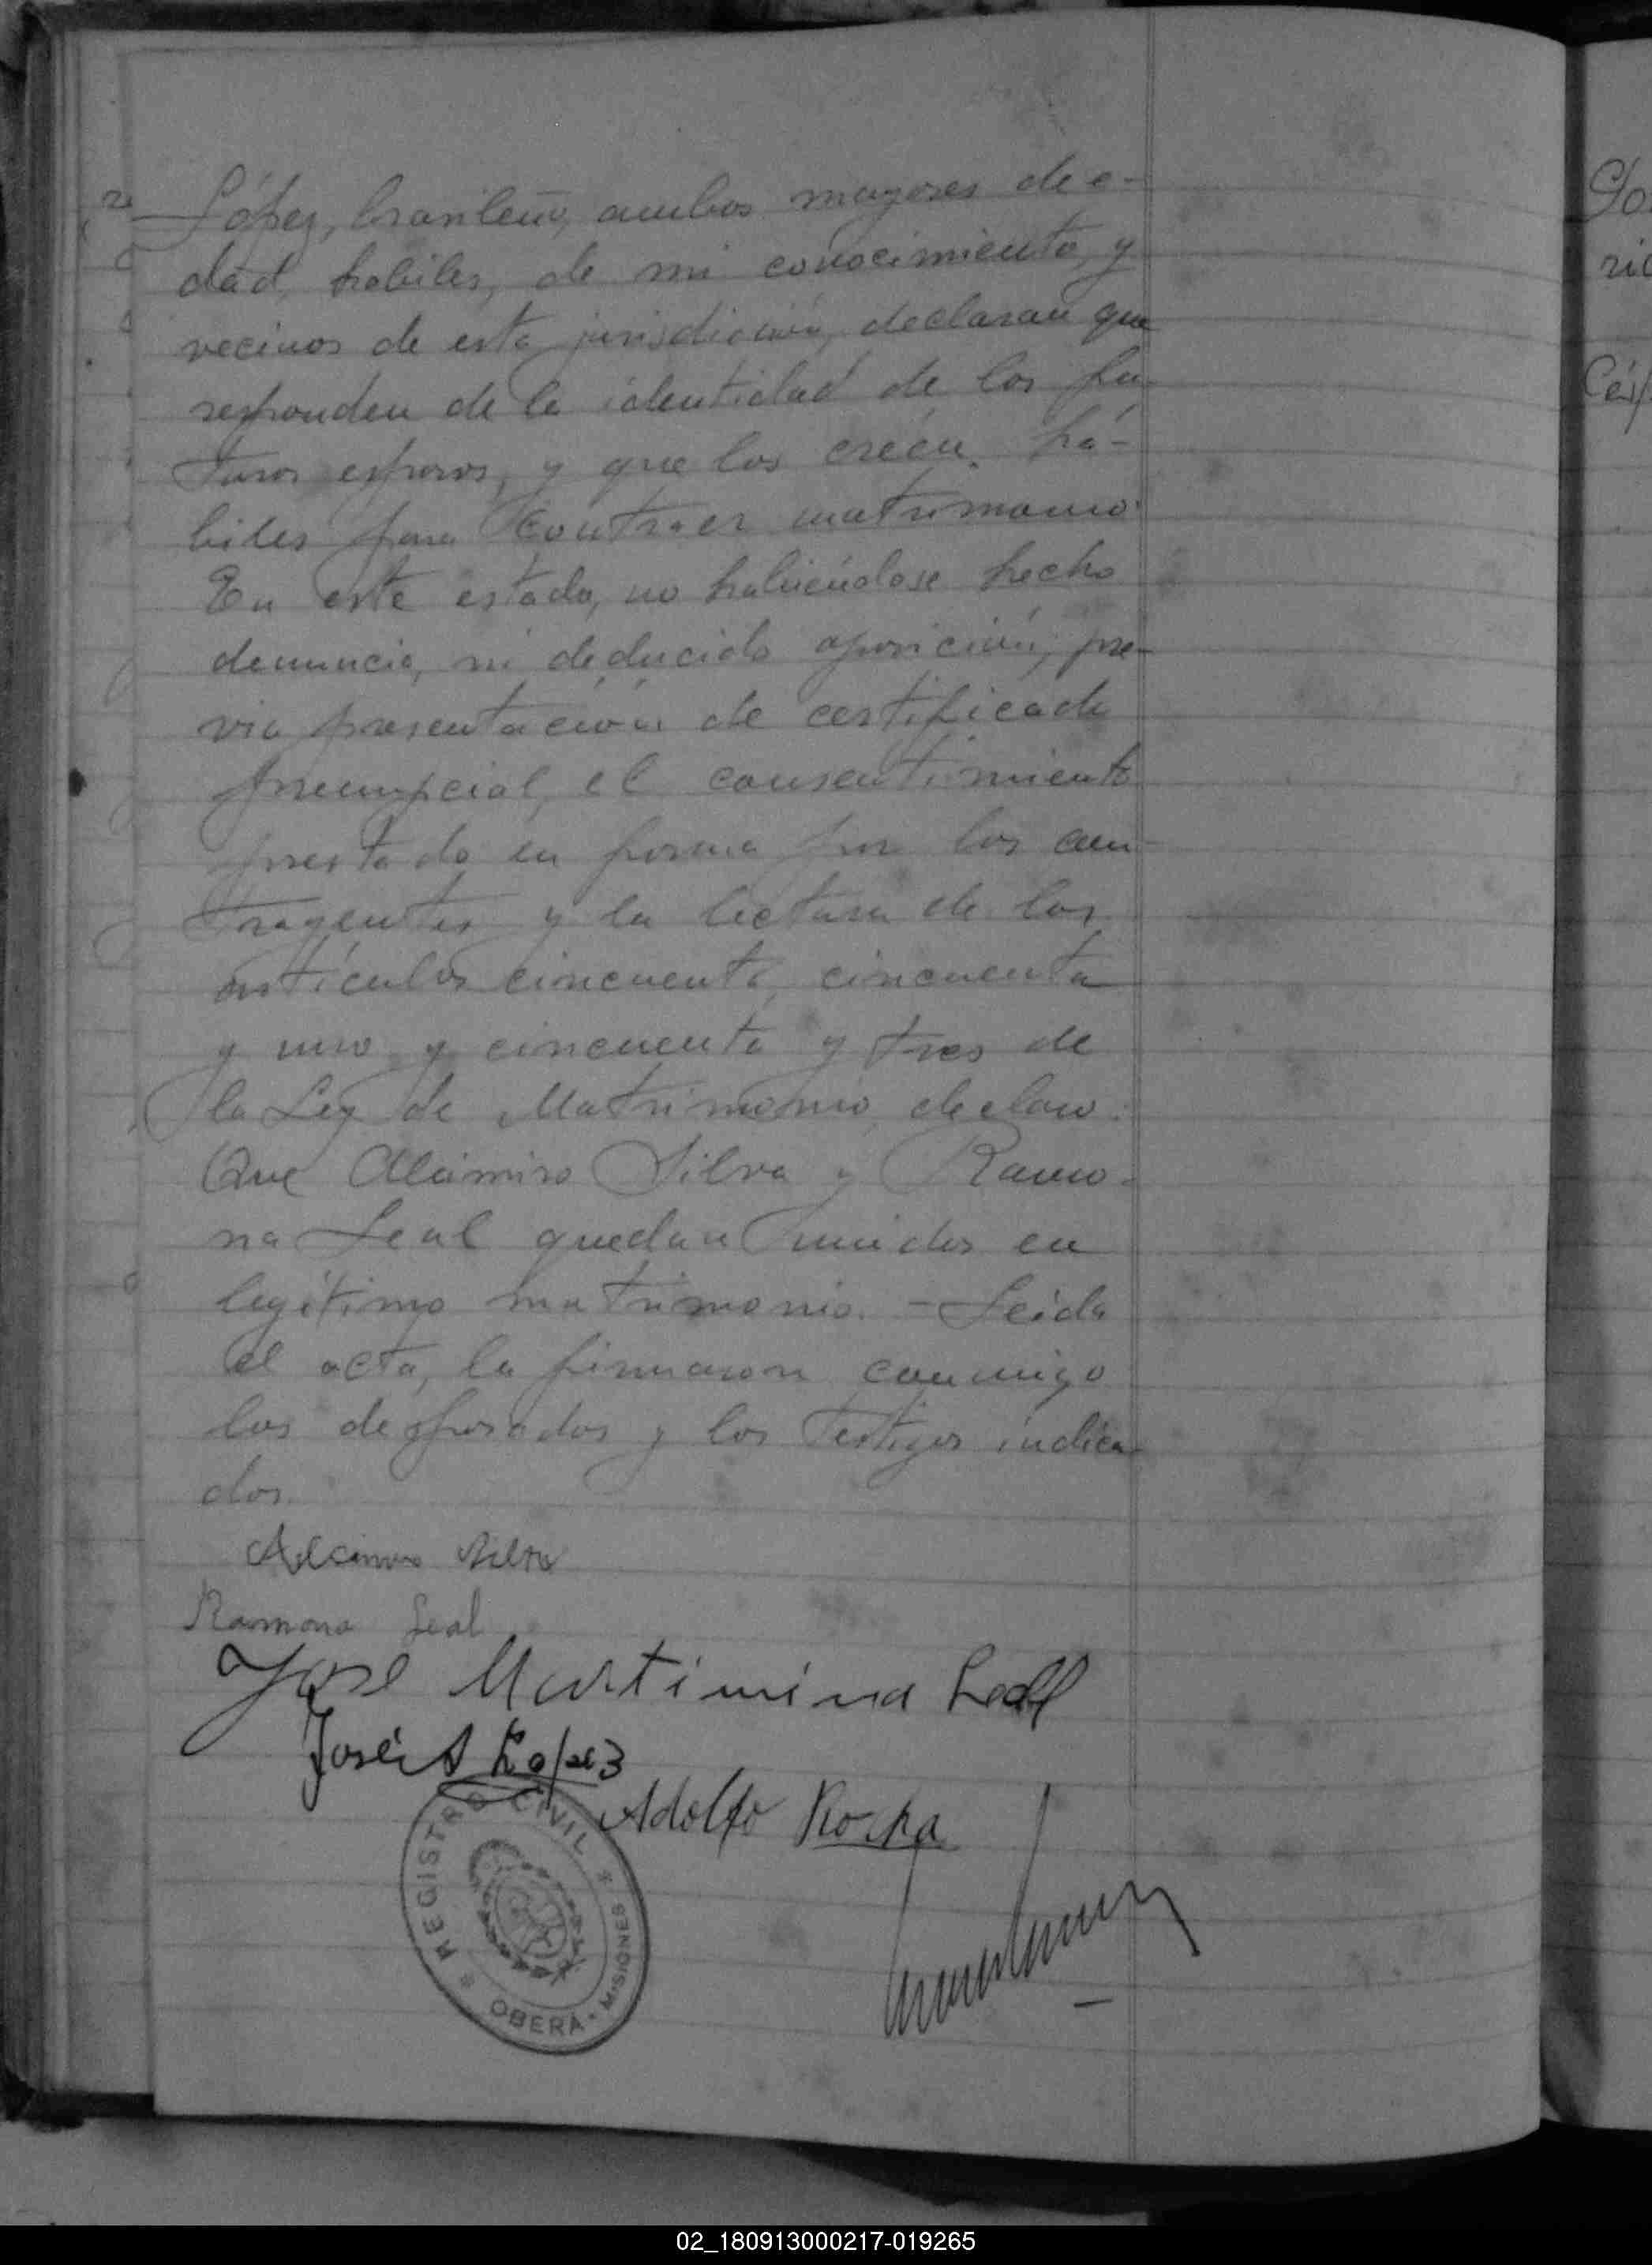 López, brasileño, ambos mayores de e-
dad, habiles, de mi conocimiento, y
vecinos de esta jurisdicción, declaran que
responden de la identidad de los fu-
turos esposos, y que los créen há-
biles para contraer matrimonio.
En este estado, no habiéndose hecho
denuncia, ni deducido oposición, pre-
via presentación de certificado
prenupcial, el consentimiento
prestado en forma por los con-
trayentes y la lectura de los
artículos cincuenta, cincuenta
y uno y cincuenta y tres de
la Ley de Matrimonio, declaro:
Que Alcimiro Silva y Ramo-
na Leal quedan unidos en
legítimo matrimonio. - Leída
el acta, la firmaron conmigo
los desposados y los testigos indica-
dos.
Silva
Ramona Leal
José Martimina Leal
José A López
Adolfo Rocha
REGISTRO CIVIL
OBERÁ - MISIONES
Cés
02_180913000217-019265